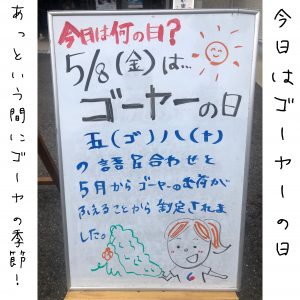 今日はゴーヤーの日
今日は何の日?
5/8(金)は...
ゴーヤーの日
五(ゴ)八(ヤ)
の語呂合わせと
5月からゴーヤーの出荷が
ふえることから制定されま
した。
あっという間にゴーヤの季節!